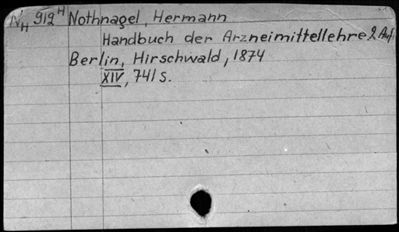 N H 912 H Nothnagel, Hermann
Handbuch der Arzneimittellehre 2. Aufl
Berlin, Hirschwald, 1874
XIV, 741 S.